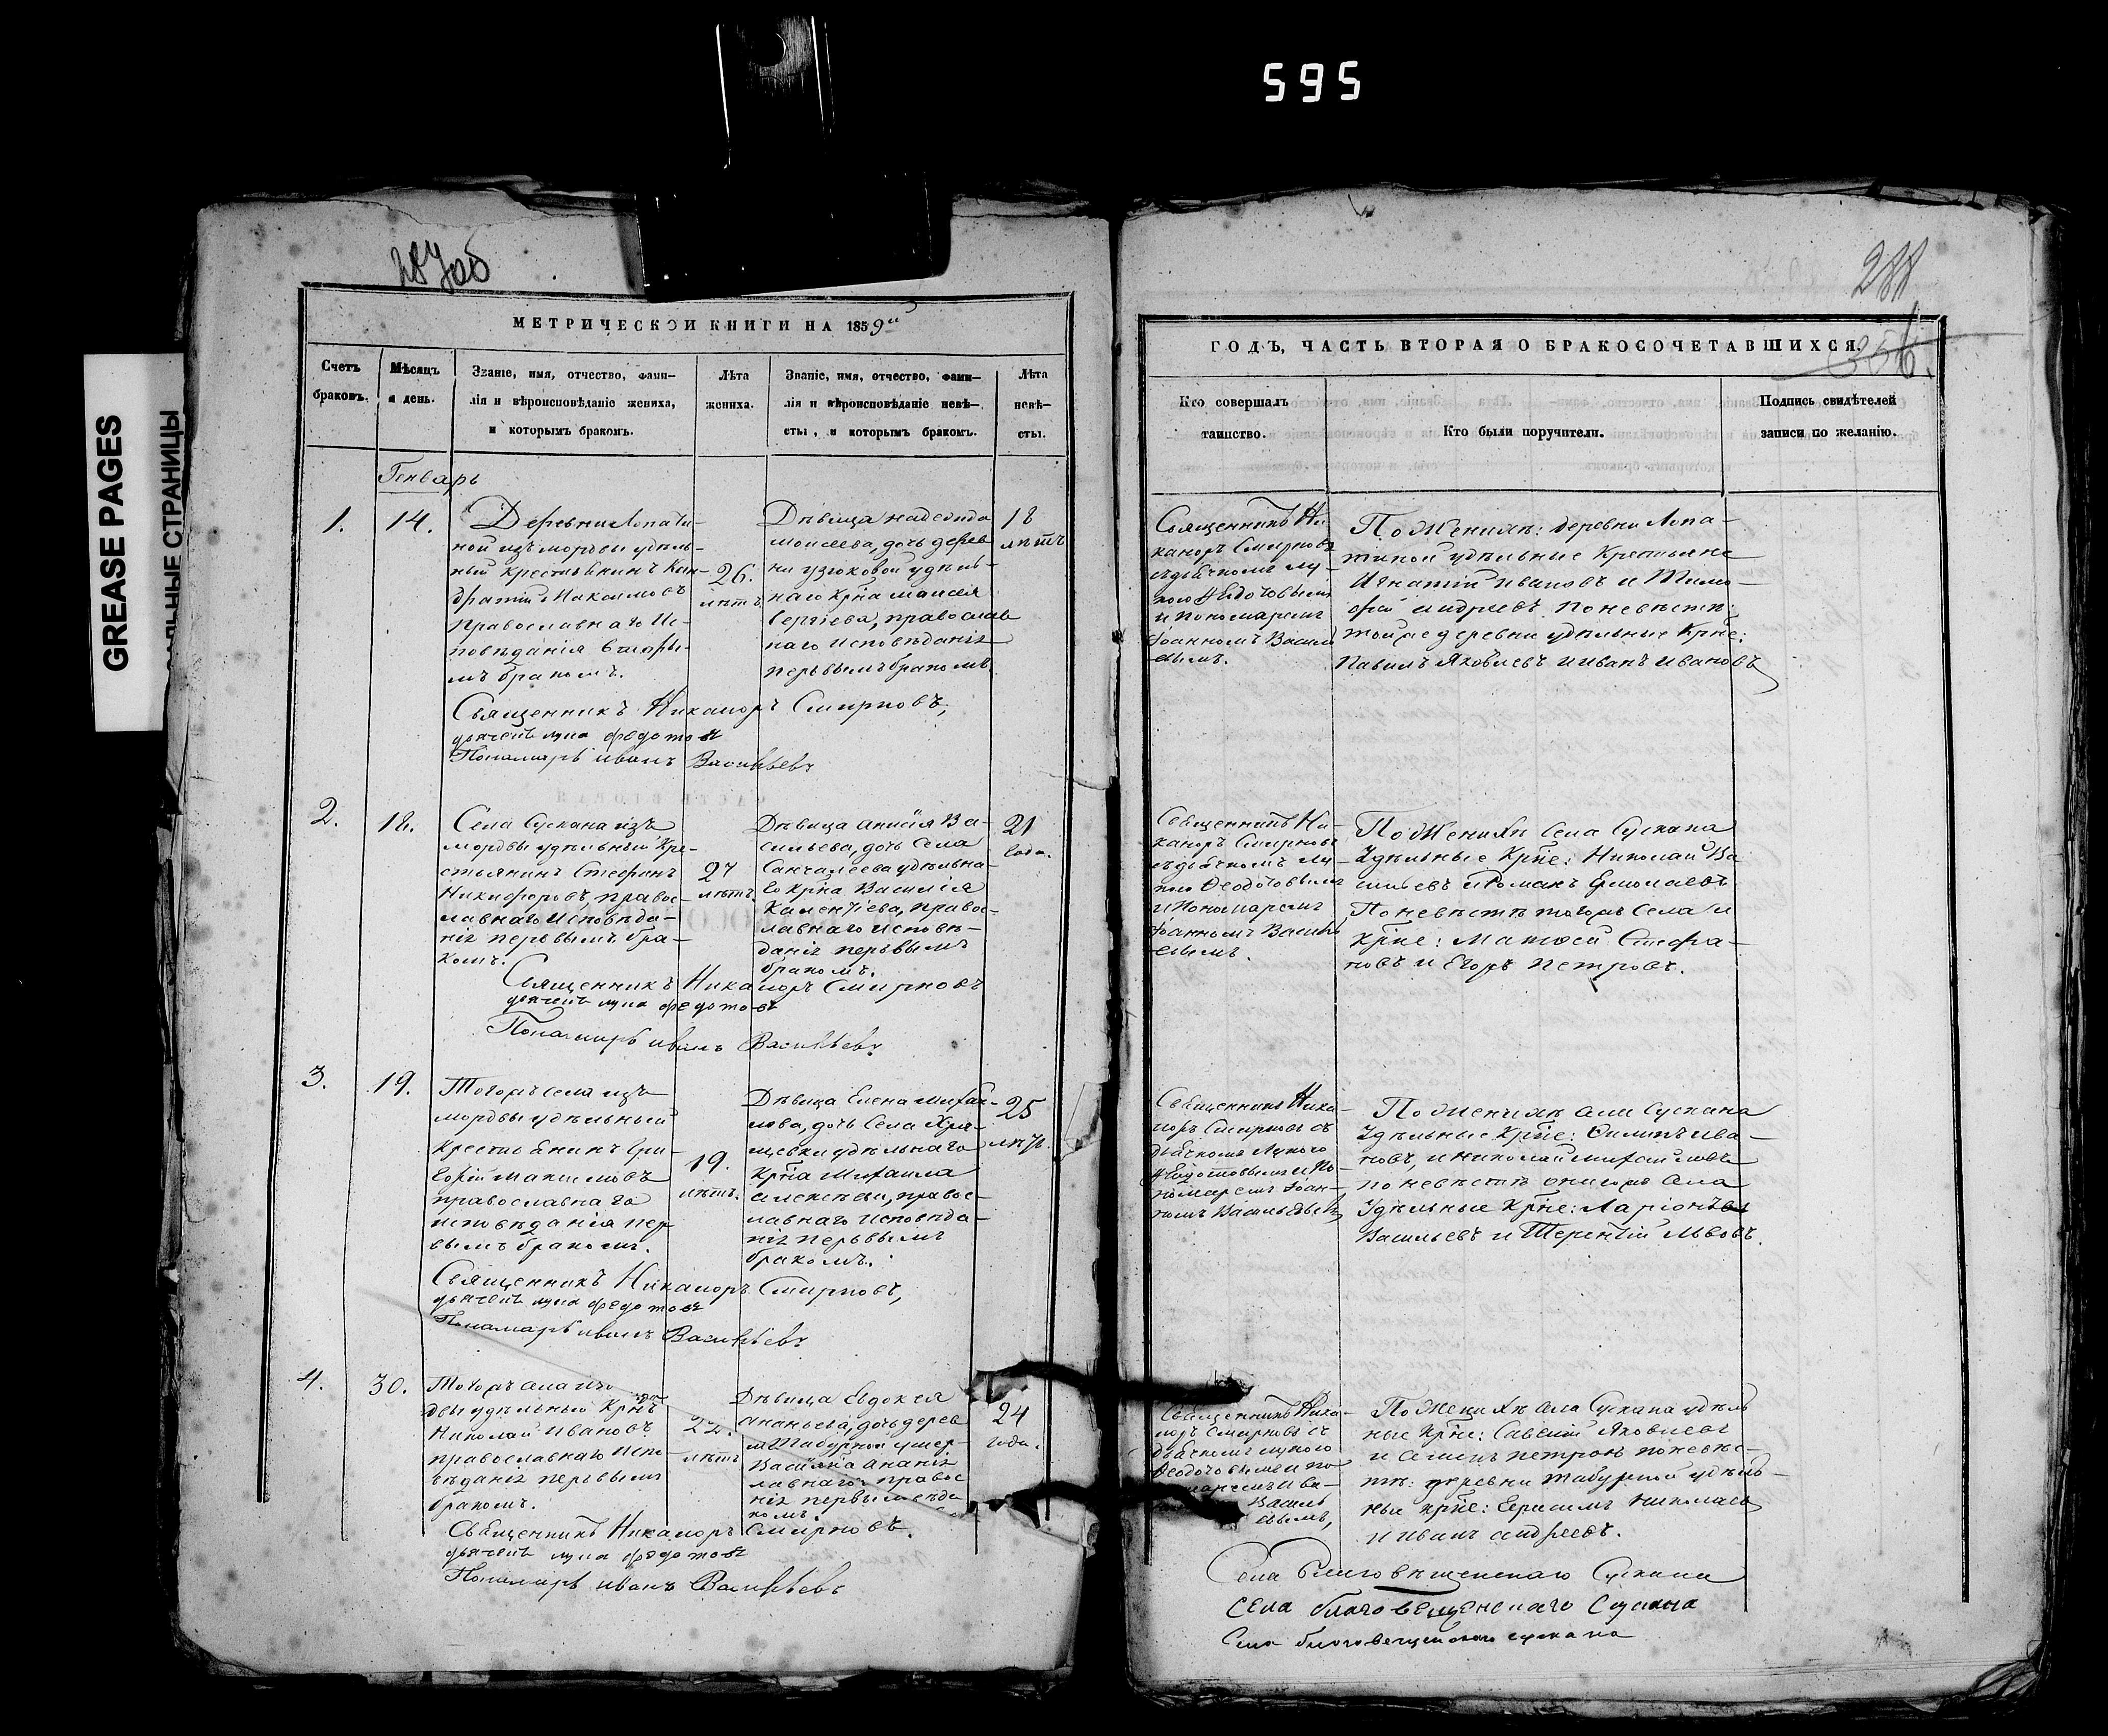 595
GREASE PAGES
СТРАНИЦЫ
287об
МЕТРИЧЕСКОЙ КНИГИ НА 1859й
Счетъ браковъ.
Мѣсяцъ и день.
Званіе, имя, отчество, фами-
лія и вѣроисповѣданіе жениха,
и которымъ бракомъ.
Лѣта жениха.
Званіе, имя, отчество, фами-
лія и вѣроисповѣданіе невѣ-
сты, и которымъ бракомъ.
Лѣта невѣ-
сты.
Генварь
1.
14.
Деревни Лопати-
ной изъ мордвы удѣль-
ный крестьянинъ Кон-
дратій Максимовъ
православнаго Ис-
повѣданія вторы-
мъ бракомъ.
26.
лѣтъ
Дѣвица Надежда
Моисеева, дочь дерев
ни Узюковой удѣль-
наго Крна Моисея
Сергѣева, православ
наго исповѣданія
первымъ бракомъ
18
лѣтъ
Священникъ Никаноръ Смирновъ,
дьячекъ лука федотовъ
Пономарь иванъ Васильевъ
2.
18.
Села Сускана изъ
мордвы удѣльный Кре-
стьянинъ Стефанъ
Никифоровъ, правос-
лавнаго Исповѣда-
нія первымъ бра-
комъ.
27
лѣтъ
Дѣвица Анисія Ва-
сильева, дочь Села
Санчалеева удѣльна-
го крна Василія
правос-
лавнаго исповѣ-
данія первымъ
бракомъ.
21
года.
Священникъ Никаноръ Смирновъ
дьячекъ лука федотовъ
Пономарь иванъ Васильевъ
3.
19.
Тогожъ села изъ
мордвы удѣльный
крестьянинъ Гри-
горій Максимовъ
православнаго
исповѣданія пер
вымъ бракомъ.
19.
лѣтъ.
Дѣвица Елена Михаи-
лова, дочь Села Хря-
щевки удѣльнаго
Крна Михаила
Алексѣева, правос-
лавнаго исповѣда-
нія первымъ
бракомъ.
25
лѣтъ.
Священникъ Никаноръ Смирновъ,
дьячекъ лука федотовъ
Пономарь иванъ Васильевъ
4.
30.
Тогожъ села изъ мор
двы удѣльный Крнъ
Николай Ивановъ
православнаго Испо-
вѣданія первымъ
бракомъ.
22.
лѣтъ
Дѣвица Евдокія
Ананьева, дочь дерев
Табурной
Ананія
правос
нія первымъ
комъ.
24
года.
Священникъ Никаноръ Смирновъ.
дьячекъ лука федотовъ
Пономарь иванъ Васильевъ
288
ГОДЪ, ЧАСТЬ ВТОРАЯ О БРАКОСОЧЕТАВШИХСЯ.
Кто совершалъ
таинство.
Кто были поручители.
Подпись свидѣтелей
записи по желанію.
Священникъ Ни-
каноръ Смирновъ
съ дьячкомъ Лу-
кою Федотовымъ
и Пономаремъ
Іоанномъ Василь
евымъ.
По Женихѣ: деревни Лопа-
тиной удѣльные Крестьяне
Игнатій Ивановъ и Тимо-
фей Андреевъ. По невѣстѣ:
той же деревни удѣльные Крне:
Павелъ Яковлевъ и Иванъ Ивановъ
Священникъ Ни-
каноръ Смирновъ
съ дьячкомъ Лу-
кою Феодотовымъ
и Пономаремъ
Іоанномъ Василь
евымъ.
По Женихѣ Села Сускана
Удѣльные Крне: Николай Ва
сильевъ и Романъ Ермолаевъ
По невѣстѣ тогожъ Села и
крне: Матвей Стефа-
новъ и Егоръ Петровъ.
Священникъ Ника-
норъ Смирновъ съ
дьячкомъ Лукою
Федотовымъ и По-
номаремъ Іоан-
номъ Васильевымъ
По Женихѣ Села Сускана
Удѣльные Крне: Филипъ Ива-
новъ, и Николай Михаиловъ
по невѣстѣ онагожъ Села
Удѣльные Крне: Ларіонъ
Васильевъ и Терентій Львовъ.
Священникъ Ника-
норъ Смирновъ съ
дьячкомъ Лукою
Феодотовымъ и по
номаремъ Ива-
Василь
евымъ,
По Женихѣ Села Сускана удѣль
ные Крне: Савелій Яковлевъ
и Семенъ Петровъ по невѣс-
тѣ: деревни Табурной удѣль-
ные крне: Герасимъ Николаевъ
и Иванъ Андреевъ.
Села Благовѣщенскаго Сускана
села благовещенскаго Сускана
Села благовещенскаго сускана